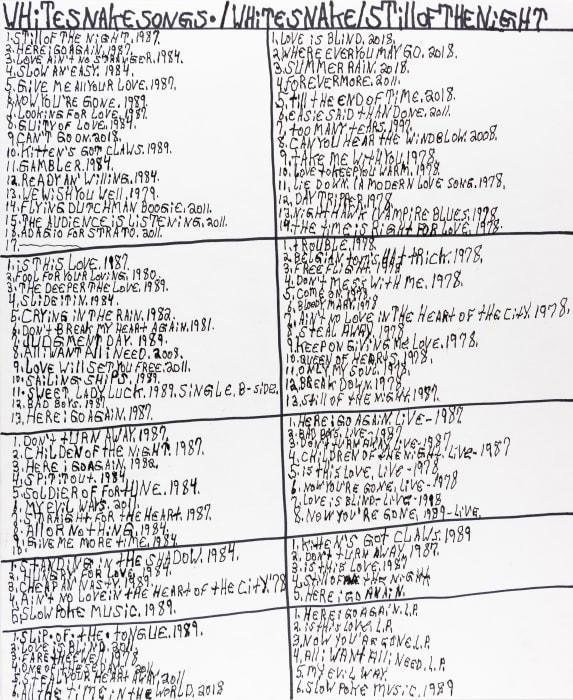 WHITESNAKE SONGS./WHITESNAKE/STILL OF THE NIGHT
1. STILL OF THE NIGHT, 1987.
2. HERE I GO AGAIN, 1987.
3. LOVE AIN'T NO STRANGER, 1984.
4. SLOW AN' EASY, 1984.
5. GIVE ME All YOUR LOVE, 1987.
6. NOW YOU'RE GONE, 1989.
7. LOOKING FOR LOVE, 1987.
8. GUILTY OF LOVE, 1984.
9. CAN'T GO ON. 2018.
10. KITTEN'S GOT CLAWS. 1989.
11. GAMBLER. 1984.
12. READY AN' WILLING. 1984.
13. WE WISH YOU WELL. 1979.
14. FLYING DUTCHMAN BOOGIE. 2011.
15. THE AUDIENCE IS LISTENING. 2011.
16. ADAGIO FOR STRATO. 2011.
17.
1. IS THIS LOVE. 1987.
2. FOOL FOR YOUR LOVING. 1980.
3. THE DEEPER THE LOVE. 1989.
4. SLIDE IT IN. 1984.
5. CRYING IN THE RAIN. 1982.
6. DON'T BREAK MY HEART AGAIN. 1981.
7. JUDGMENT DAY. 1989.
8. All I WANT All I NEED. 2008.
9. LOVE WILL SET YOU FREE. 2011.
10. SAILING SHIPS. 1989.
11. SWEET LADY LUCK. 1989. SINGLE, B-side.
12. BAD BOYS. 1987.
13. HERE I GO AGAIN. 1987.
1. DON'T TURN AWAY. 1987.
2. CHILDEN OF THE NIGHT 1987.
3. HERE I GO AGAIN. 1982.
4. SPIT IT OUT. 1984.
5. SOLDIER OF FORTUNE. 1984.
6. MY EVIL WAYS. 2011.
7. STRAIGHT FOR THE HEART. 1987.
8. All OR NOTHING. 1984.
9. GIVE ME MORE TIME. 1984.
10.
1. STANDING IN THE SHADOW. 1984.
2. HUNGRY FOR LOVE.
3. CHEAP AN' NASTY. 1989.
4. AIN'T NO LOVE IN THE HEART OF THE CITY. '78
5. SLOW POKE MUSIC. 1989.
1. SLIP. OF. THE. TONGUE. 1989.
2. LOVE IS BLIND. 2011.
3. FARE THEE WELL.
4. ONE OF THESE DAYS. 2011.
5. STEAL YOUR HEART AWAY. 2011
6. All THE TIME IN THE WORLD. 2018
1. LOVE IS BLIND. 2018.
2. WHERE EVER YOU MAY GO. 2018.
3. SUMMER RAIN. 2018.
4. FOREVERMORE. 2011.
5. till THE END OF TIME. 2018.
6. EASIE SAID THAN DONE. 2011.
7. TOO MANY TEARS. 1997.
8. CAN YOU HEAR THE WIND BLOW. 2008.
9. TAKE ME WITH YOU. 1978.
10. LOVE TO KEEP YOU WARM. 1978.
11. LIE DOWN. (A MODERN LOVE SONG. 1978,
12. DAY TRIPPER 1978,
13. NIGHT HAWK (VAMPIRE BLUES. 1978.
14. THE TIME IS RIGHT FOR LOVE. 1978.
1. TROUBLE. 1978.
2. BELGIAN TOM'S HAT TRICK. 1978,
3. FREE FLIGHT. 1978
4. DON'T MESS WITH ME. 1978,
5. COME ON. 1978
6. BLOODY MARY. 1978
7. AIN'T NO LOVE IN THE HEART OF THE CITY. 1978,
8. STEAL AWAY. 1978
9. KEEP ON GIVING ME LOVE. 1978,
10. QUEEN OF HEARTS. 1978,
11. ONLY MY SOUL. 1978,
12. BREAK DOWN. 1978
13. STILL OF THE NIGHT. 1987.
1. HERE I GO AGAIN. LIVE-1987
2. BAD BOYS. LIVE-1987
3. DON'T TURN AWAY. LIVE-1987
4. CHILDREN OF THE NIGHT. LIVE-1987
5. IS THIS LOVE, LIVE-1978
6. NOW YOU'RE GONE, LIVE-1978
7. LOVE IS BLIND-LIVE-1998
8. NOW YOU'RE GONE, 1989-LIVE.
1. KITTEN'S GOT CLAWS 1989
2. DON'T TURN AWAY. 1987.
3. IS THIS LOVE. 1987
4. STILL OF THE NIGHT
5. HERE I GO AGAIN.
1. HERE I GO AGAIN. L.P.
2. IS THIS LOVE. L.P.
3. NOW YOU'RE GONE. L.P.
4. All I WANT All I NEED. L.P.
5. MY EVIL WAY.
6. SLOW POKE MUSIC. 1989